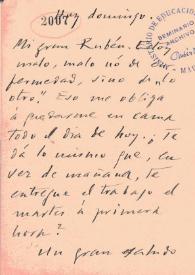 Hoy domingo.
2007
Mi gran Rubén: Estoy
malo, malo nó de "en-
fermedad, sino de lo
otro". Eso me obliga
á quedarme en cama
todo el día de hoy. ¿Te
dá lo mismo que, en
vez de mañana, te
entregue el trabajo el
martes á primera
hora?
Un gran saludo
MINISTERIO DE EDUCACIÓN
SEMINARIO
ARCHIVO